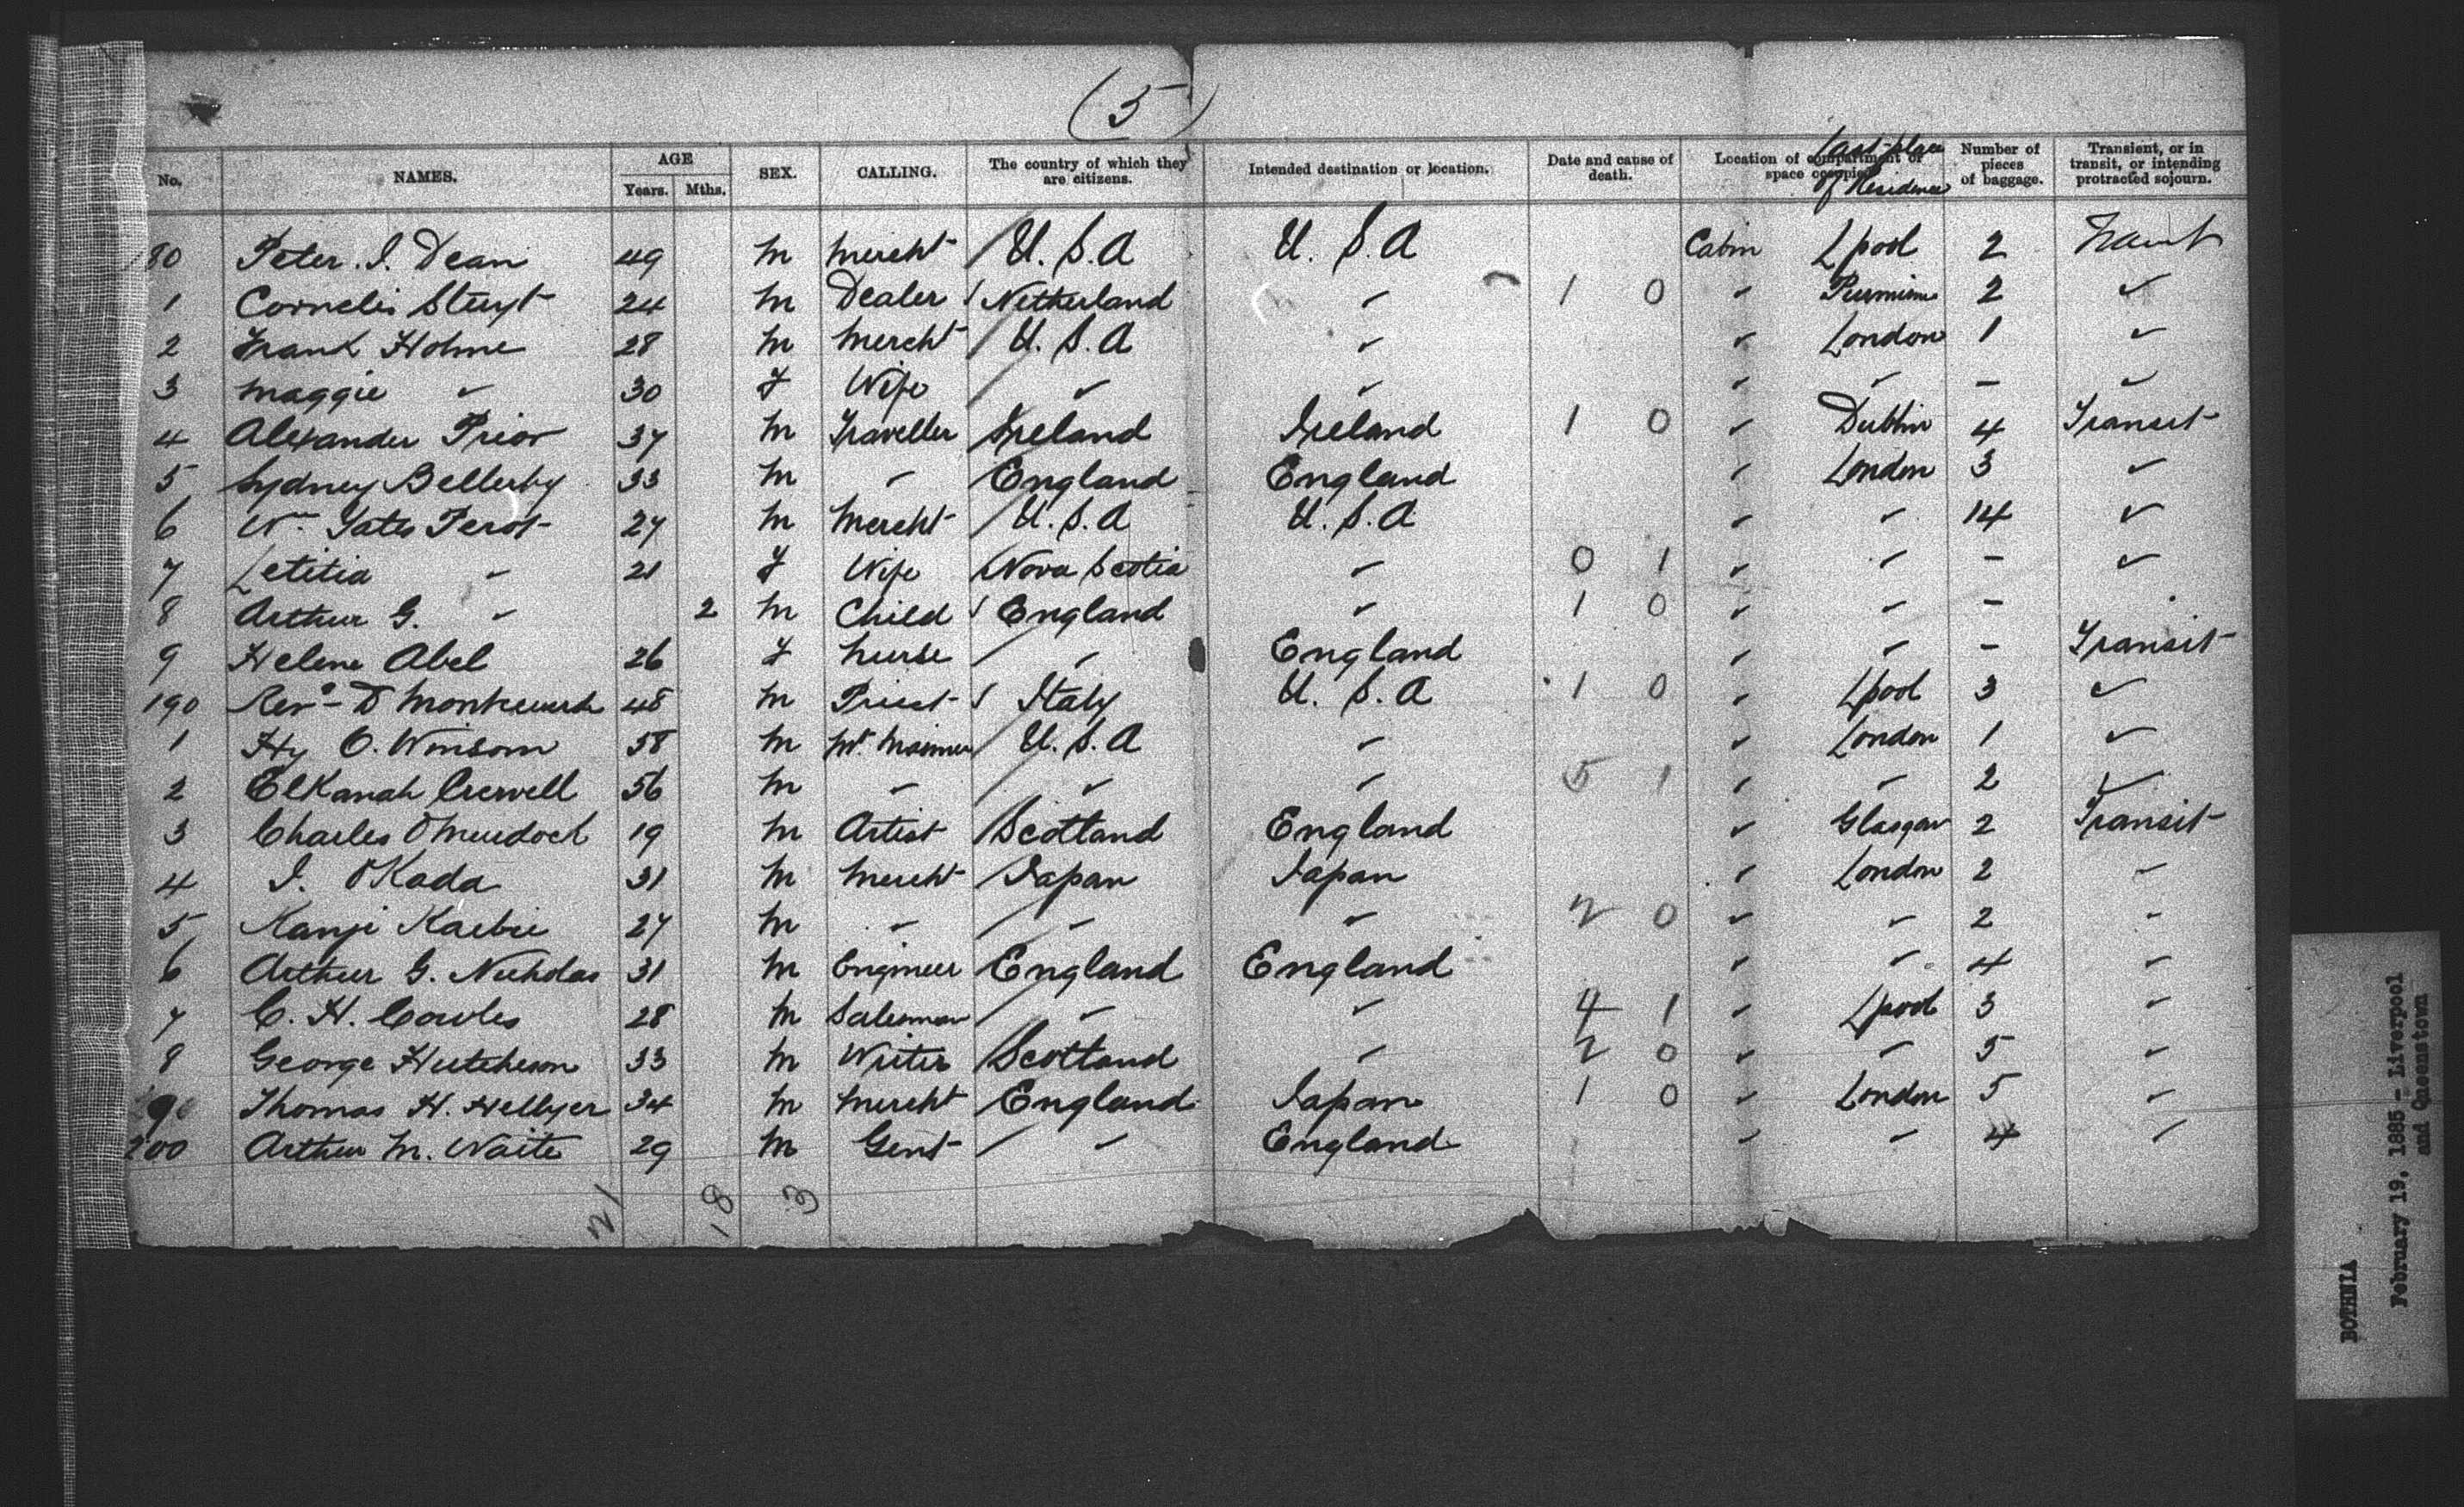 (5)
No. NAMES. AGE Years. Mths. SEX. CALLING. The country of which they are citizens. Intended destination or location. Date and cause of death. Location of compartment or space occupied Last place of Residence Number of pieces of baggage. Transient, or in transit, or intending protracted sojourn.
180 Peter. I. Dean 49 M Mercht U.S.A U.S.A Cabin Lpool 2
1 Cornelis Stuyt 24 M Dealer Netherland " 1 0 " 2 "
2 Frank Holme 28 M Mercht U.S.A " " London 1 "
3 Maggie " 30 F Wife " " " " - "
4 Alexander Prior 37 M Traveller Ireland Ireland 1 0 " Dublin 4 Transit
5 Sydney Bellerby 33 M " England England " London 3 "
6 Wm Yates Perot 27 M Mercht U.S.A U.S.A " " 14 "
7 Letitia " 21 F Wife Nova Scotia " 0 1 " " - "
8 Arthur G. " 2 M Child England " 1 0 " " -
9 Helene Abel 26 F Nurse " England " " - Transit
190 Revd D 48 M Priest Italy U.S.A 1 0 " Lpool 3 "
1 Hy C. Winsom 58 M Mr Mariner U.S.A " " London 1 "
2 Elkanah Crowell 56 M " " " 5 1 " " 2 "
3 Charles O Murdoch 19 M Artist Scotland England " Glasgow 2 Transit
4 I. OKada 31 M Mercht Japan Japan " London 2 "
5 Kanji 27 M " " " 2 0 " " 2 "
6 Arthur G. Nicholas 31 M Engineer England England " " 4 "
7 C. H. Cowles 28 M Salesman " " 4 1 " Lpool 3 "
8 George Hutcheson 33 M Writer Scotland " 2 0 " " 5 "
9 Thomas H. Hellyer 34 M Mercht England Japan 1 0 " London 5 "
200 Arthur M. Waite 29 M Gent " England " " 4 "
21 18 3
BOTHNIA
February 19, 1885 - Liverpool
and Queenstown